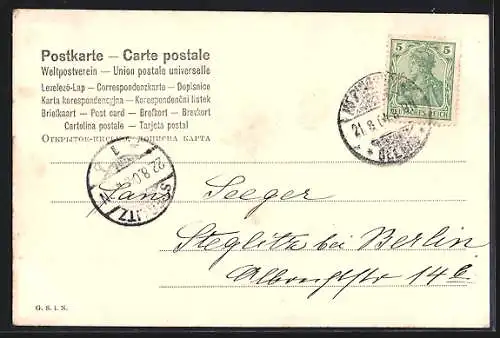 Postkarte — Carte postale
Weltpostverein — Union postale universelle
Levelező-Lap — Correspondenzkarte — Dopisnice
Karta korespondencyjna — Korespondenční listek
Briefkaart — Post card — Brefkort — Brevkort
Cartolina postale — Tarjeta postal
ОТКРЫТОЕ ПИСЬМО ДОПИСНА КАРТА
5 5
DEUTSCHES REICH
21.8.04
22.8.04
STEGLITZ
Hans Seeger
Steglitz bei Berlin
Albrechtstr 14 b.
G. B. i. N.